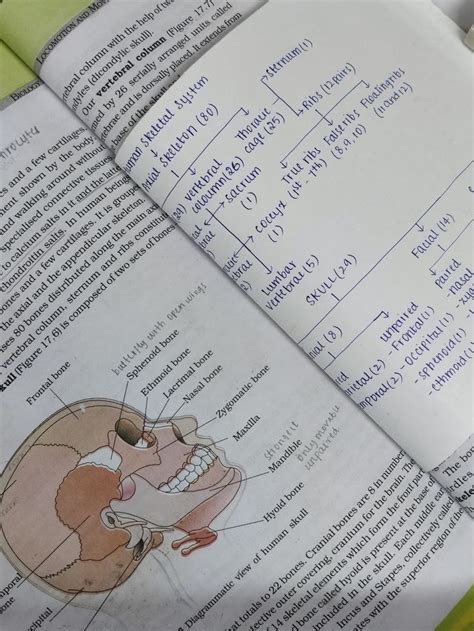 LOCOMOTION AND MOV
ebral column with the help of tw
ndyles (dicondylic skull).
our vertebral column (Figure 17.7)
ed by 26 serially arranged units called
ebrae and is dorsally placed. It extends from
ase of the skull
BIOLO
s and a few cartilages
ment shown by the body
and walking around without
specialised connective tissue
to calcium salts in it and the latt
hondroitin salts. In human being
ones and a few cartilages. It is grou
the axial and the appendicular skeleton
ises 80 bones distributed along the main ax
vertebral column, sternum and ribs constitu
kull (Figure 17.6) is composed of two sets of bones
uman skeletal system
axial skeleton (80)
vertebral
coloumn (26)
thoracic
cage (25)
sternum (1)
Ribs (12 pairs)
True ribs
(1st - 7th)
False ribs
(8, 9, 10)
Floating ribs
(11 and 12)
sacrum
(1)
coccyx
(1)
lumbar
vertebrae (5)
SKULL (29)
nial (8)
Facial (14)
paired
-nasal
unpaired
-Frontal (1)
-occipital (1)
-sphenoid (1)
-ethmoid
rietal (2)
mporal (2)
butterfly with open wings
Frontal bone
Sphenoid bone
Ethmoid bone
Lacrimal bone
Nasal bone
Zygomatic bone
Maxilla
Mandible
strongest
only movable
unpaired
Hyoid bone
poral
bone
cipital
Diagrammatic view of human skull
at totals to 22 bones. Cranial bones are 8 in number.
tective outer covering, cranium for the brain. The
14 skeletal elements which form the front part
d bone called hyoid is present at the base of
included in the skull. Each middle ear
Incus and Stapes, collectively called
ates with the superior region of the
The bo